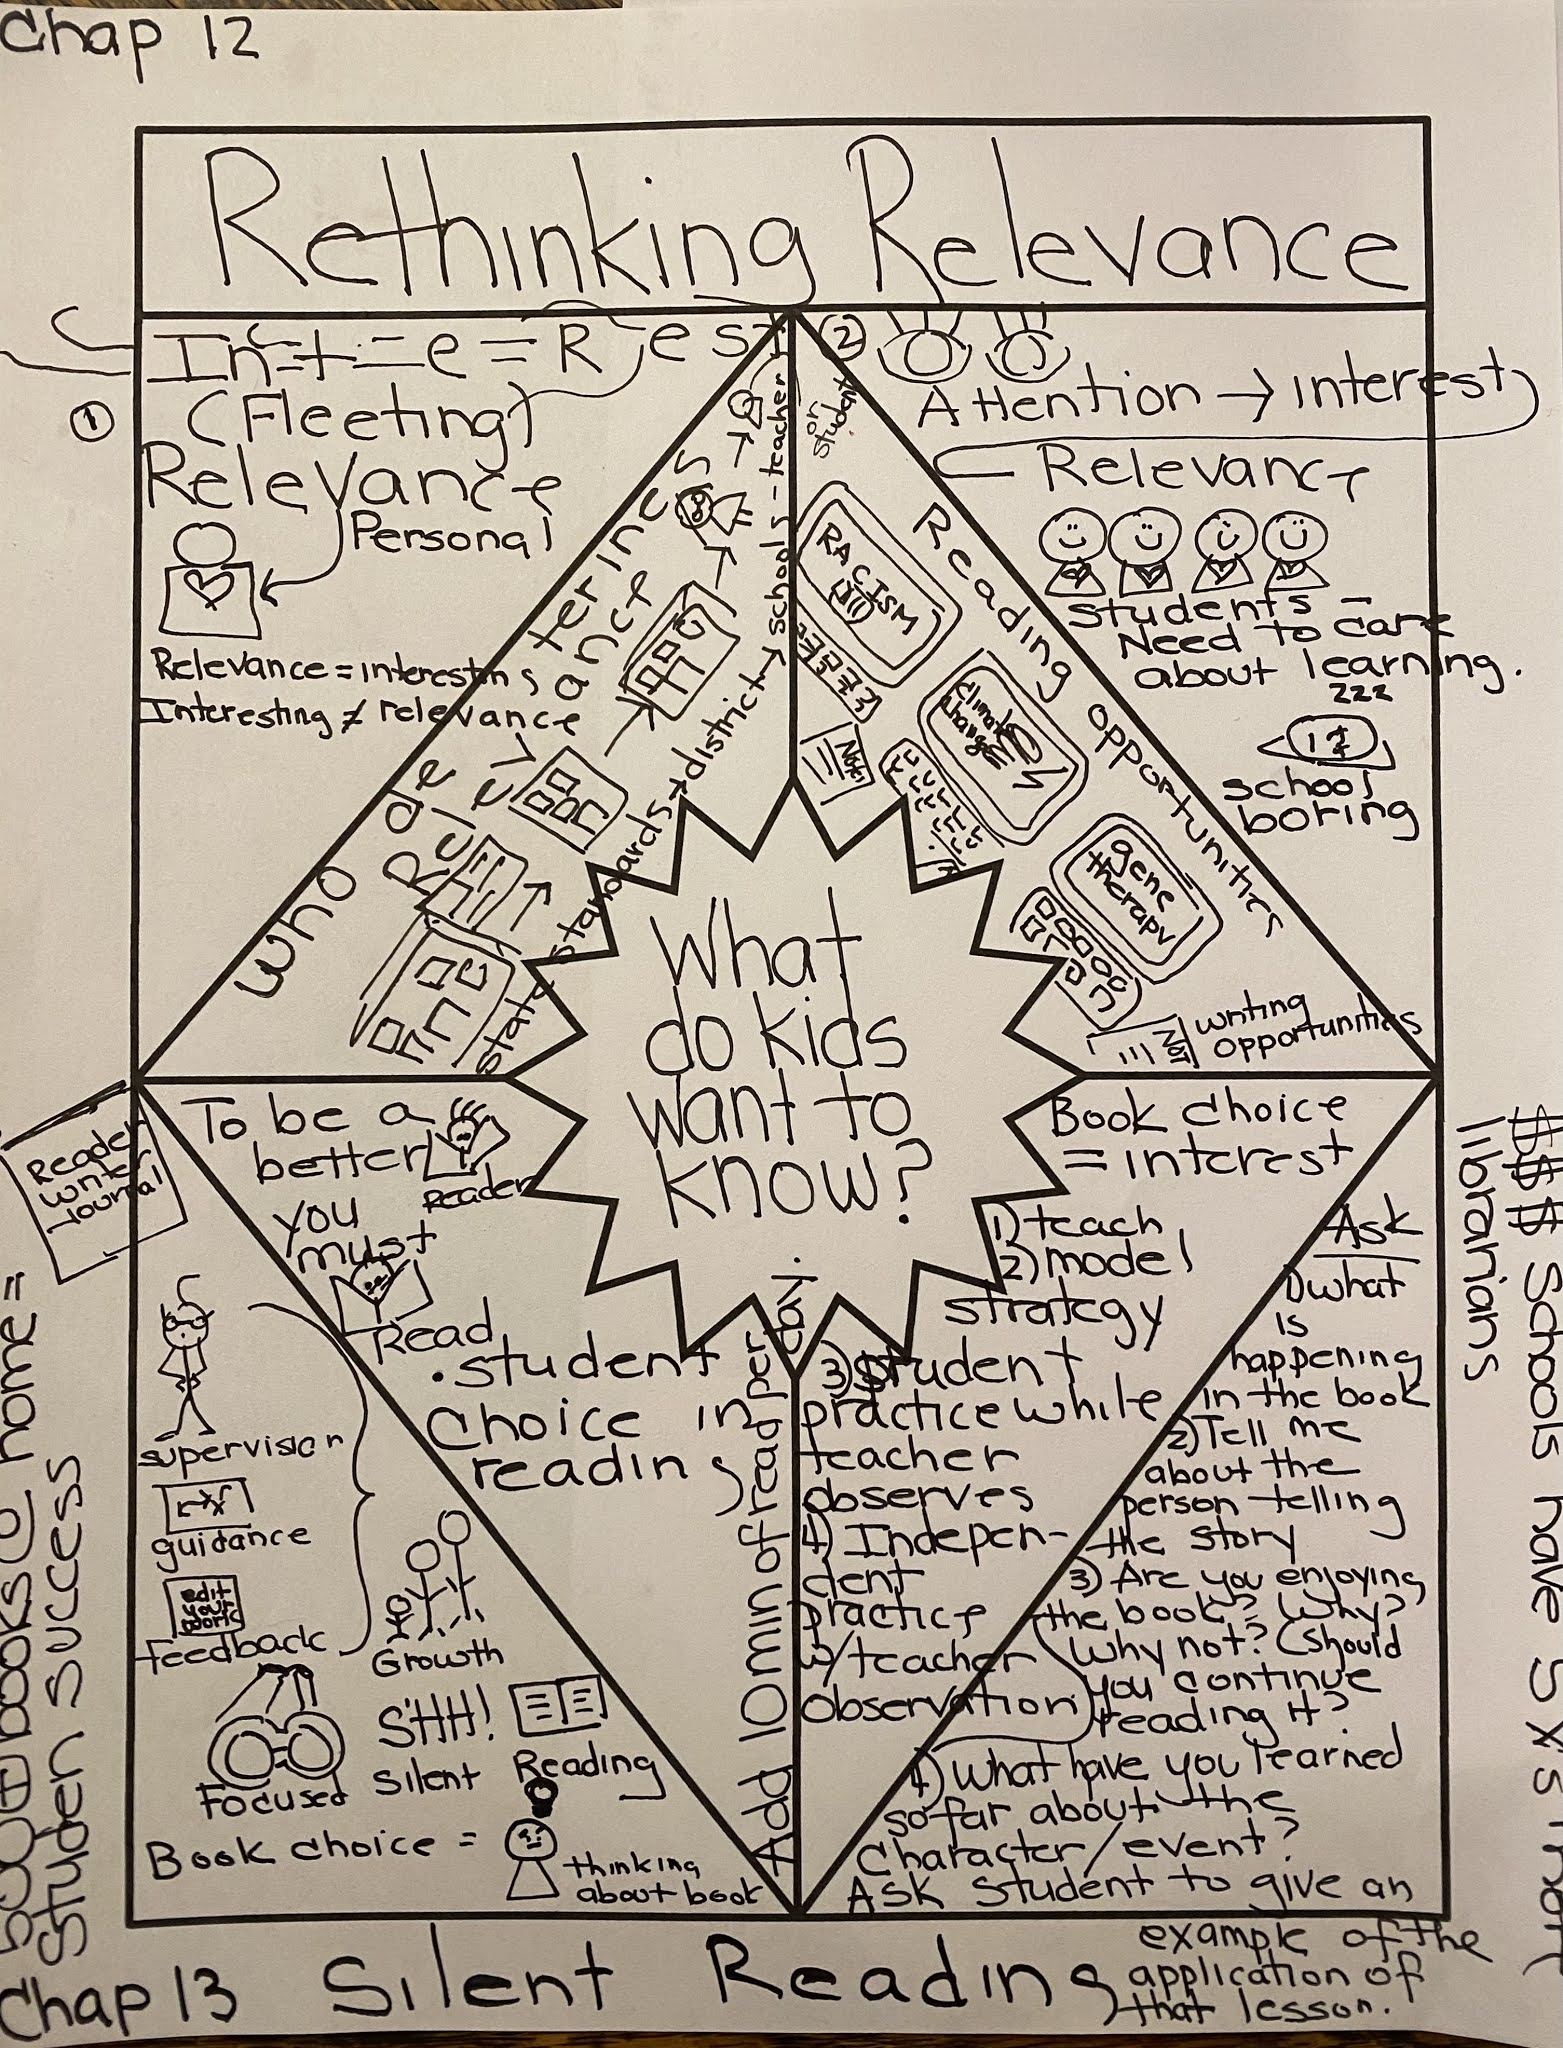 Chap 12
Rethinking Relevance
①
(Fleeting)
Relevance
Personal
Relevance = interesting
Interesting ≠ relevance
②
Attention → interest
Relevance
students -
Need to care
about learning.
zzz
school
boring
state standards → district → schools - teacher
or
student
Reading opportunities
RACISM
climate
change
gene
therapy
Notes
writing
opportunities
What
do kids
want to
know?
To be a
better
Reader
you
must
Read
• student
choice in
reading
Reader
writer
Journal
supervision
guidance
edit
your
work
feedback
Growth
Focused
SHH!
silent
Reading
Book choice =
thinking
about book
Add 10 min of read per
day.
Book choice
= interest
1) teach
2) model
strategy
3) student
practice while
teacher
observes
4) Indepen-
dent
practice
w/teacher
observation
Ask
1) what
is
happening
in the book
2) Tell me
about the
person telling
the story
3) Are you enjoying
the book? Why?
Why not? (Should
you continue
reading it?
4) What have you learned
so far about the
character/event?
Ask student to give an
example of the
application of
that lesson.
books @ home =
Student success
$$$ Schools have 5 x's more
librarians
Chap 13 Silent Reading